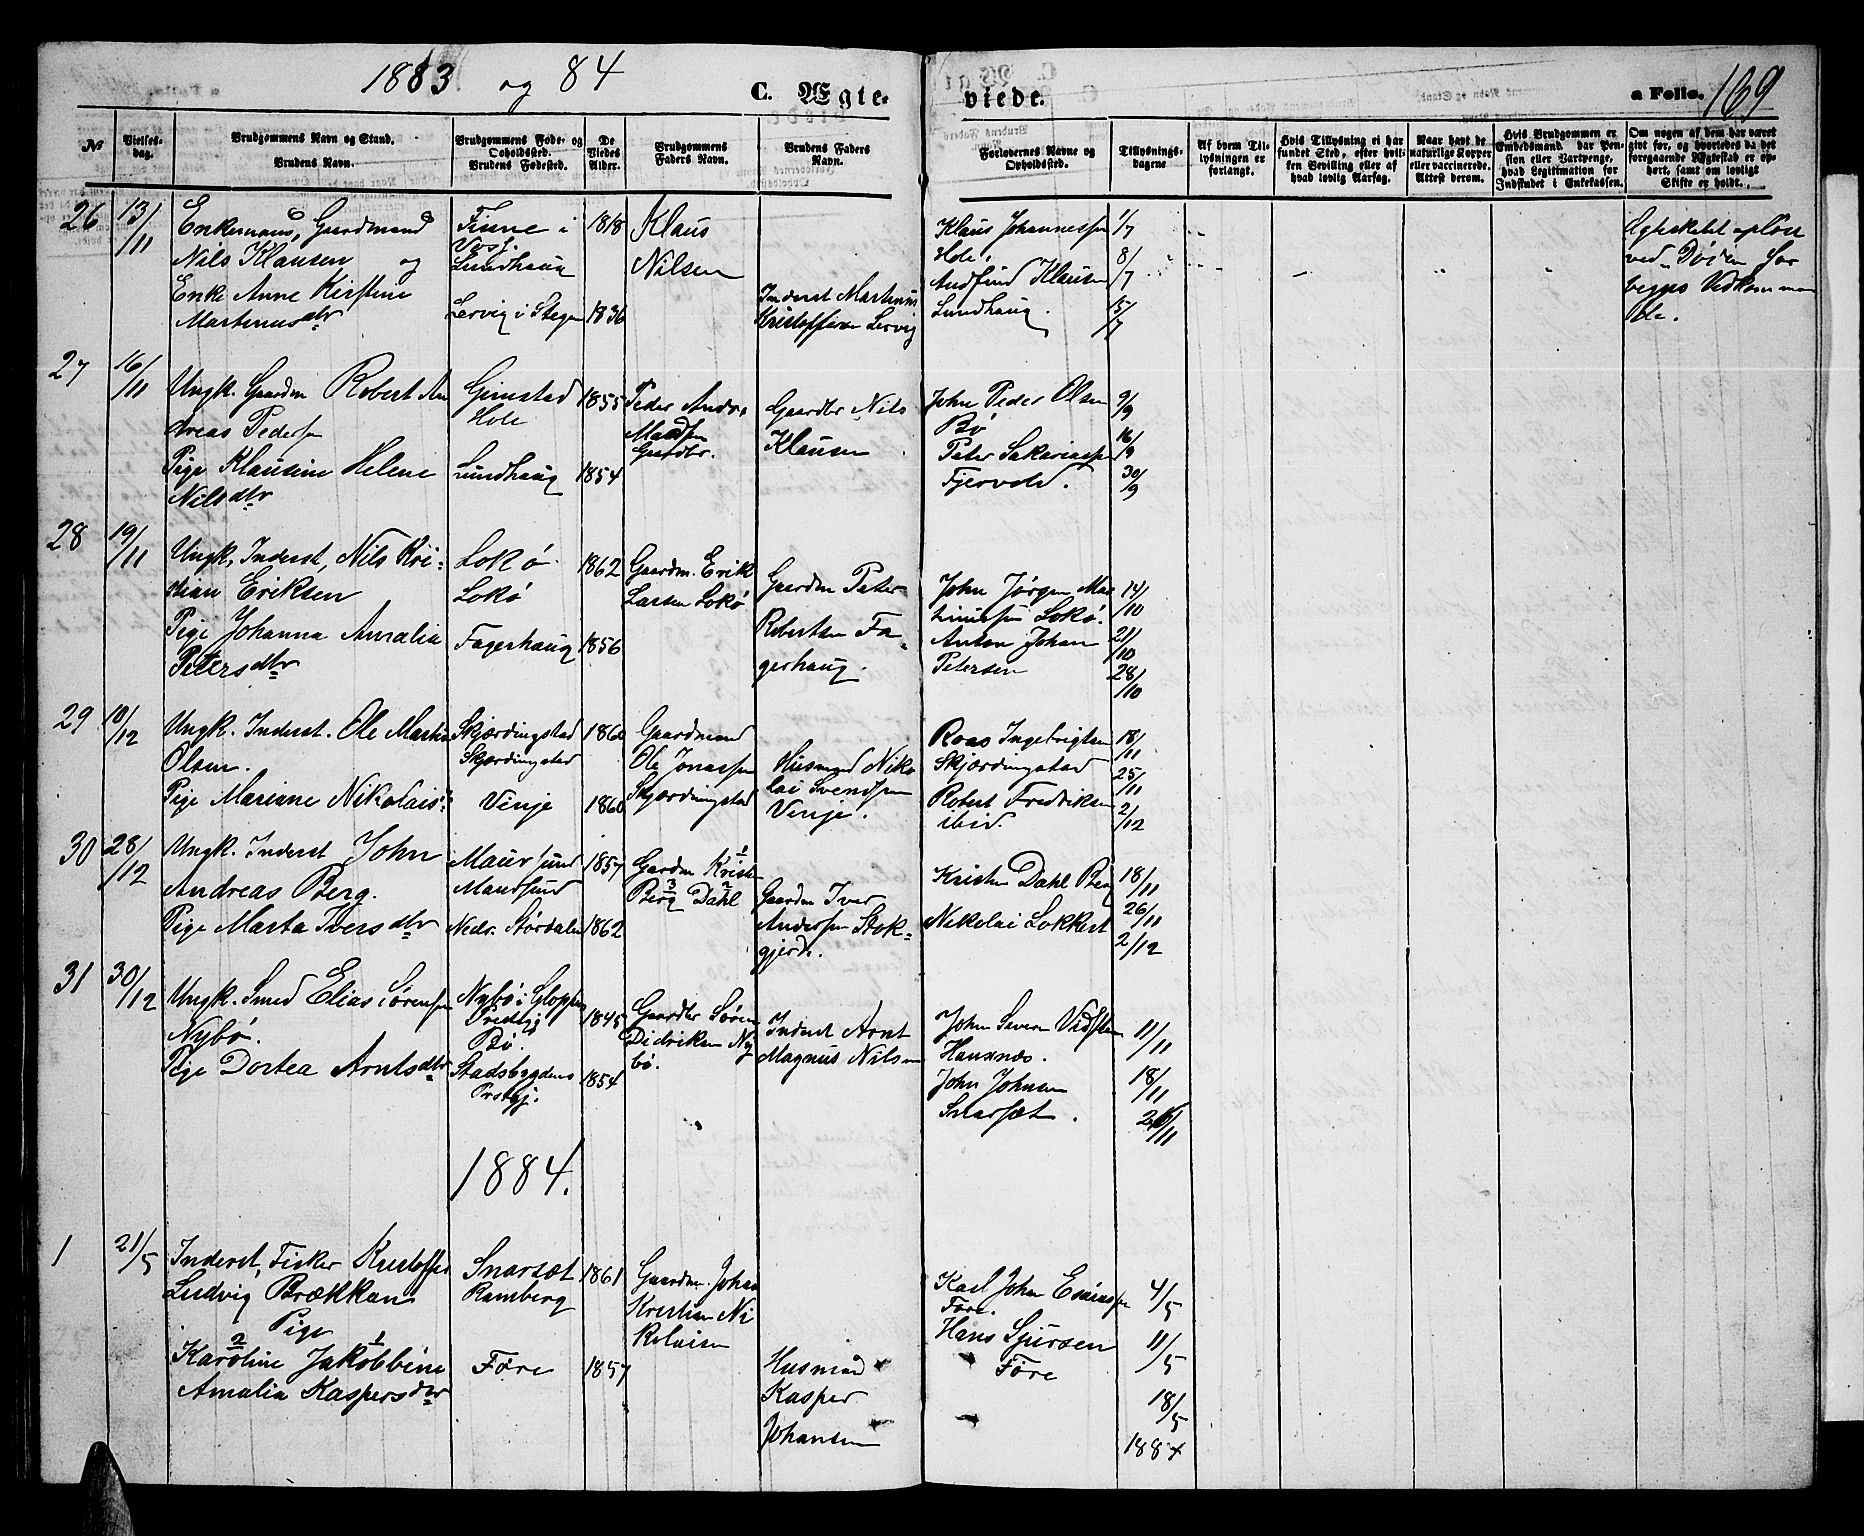 1883 og 84
C. Ægte-
viede.
a Folio. 169
No
Vielses-
dag.
Brudgommens Navn og Stand.
Brudens Navn.
Brudgommens Føde- og
Opholdssted.
Brudens Fødested.
De
Viedes
Alder.
Brudgommens
Faders Navn.
Brudens Faders
Navn.
Forlovernes Navne og
Opholdssted.
Tillysnings-
dagene.
Af hvem Til-
lysningen er
forlangt.
Hvis Tillysning ei har
fundet Sted, efter hvil-
ken Bevilling eller af
hvad lovlig Aarsag.
Naar havt de
naturlige Kopper
eller vaccinerede.
Attest derom.
Hvis Brudgommen er
Embedsmand, har Pen-
sion eller Vartpenge,
hvad Legitimation for
Indskudet i Enkekassen.
Om nogen af dem har været
givt før, og hvorledes da det
foregaaende Ægteskab er op-
hørt, samt om lovligt
Skifte er holdt.
26 13/11
Enkemand, Gaardmand
Nils Klausen og
Enke Anne Kirstine
Martinusdtr
Finne i
Lundhaug
Lervig i Stegen
1818
1836
Klaus
Nilsen
Inderst Martinus
Kristoffersen Lervig
Klaus Johannessen
Hole.
Andfind Klausen
Lundhaug.
1/7
8/7
15/7
ved Døden for
begges Vedkommen
de.
27 16/11
Ungk. Gaardm Robert An
dreas Pedersen
Pige Klausine Helene
Nilsdtr
Gimstad
Hole
Lundhaug
1855
1854
Peder Andr.
Madsen
Gaardbr.
Gaardbr Nils
Klausen
John Peder Olsen
Bø
Peter Sakariassen
Fjervold.
9/9
16/9
30/9
28 19/11
Ungk. Inderst, Nils Kri-
stian Eriksen
Pige Johanna Amalia
Petersdtr
Lokø
Lokø
Fagerhaug
1862
1856
Gaardm. Erik
Larsen Lokø
Gaardm Peter
Robertsen Fa-
gerhaug.
John Jørgen Mar
tinussen Lokø.
Anton Johan
Petersen
14/10
21/10
28/10
29 10/12
Ungk. Inderst. Ole Martin
Olsen.
Pige Mariane Nikolaisdtr
Skjærdingstad
Skjærdingstad
Vinje
1860
1860
Gaardmand
Ole Jonassen
Skjærdingstad
Husmand Niko
lai Svendsen
Vinje.
Roas Ingebrigtsen
Skjærdingstad
Robert Fredriksen
ibid.
18/11
25/11
2/12
30 28/12
Ungk. Inderst John
Andreas Berg.
Pige Marta Iversdtr
Maursund
Maursund
Nedr. Størdalen
1857
1862
Gardm Krist.
Berg Dahl
Gaardm Iver
Andersen Stok-
gjerd.
Kristen Dahl Berg
Nikolai Lokkert
18/11
26/11
2/12
31 30/12
Ungk. Smed Elias Sørensen
Nybø.
Pige Dortea Arntsdtr
Nybø i Gloppen
Prestgj
Bø.
Stadsbygdens
Prstgj.
1845
1854
Gaardbr Søren
Didriksen Ny
bø.
Inderst Arnt
Magnus Nilsen
John Severin Vidsten
Hauknæs.
John Johnsen
Snarsæt.
11/11
18/11
26/11
1884.
1 21/5
Inderst, Fisker Kristoffer
Ludvig Brækkan
Pige
Karoline Jakobbine
Amalia Kaspersdtr
Snarsæt
Ramberg
Føre
1861
1857
Gaardm. Johan
Kristian Ni
kolaisen
Husmand
Kasper
Johansen
Karl Johan Esaiassen
Føre.
Hans Sjursen
Føre
4/5
11/5
18/5
1884